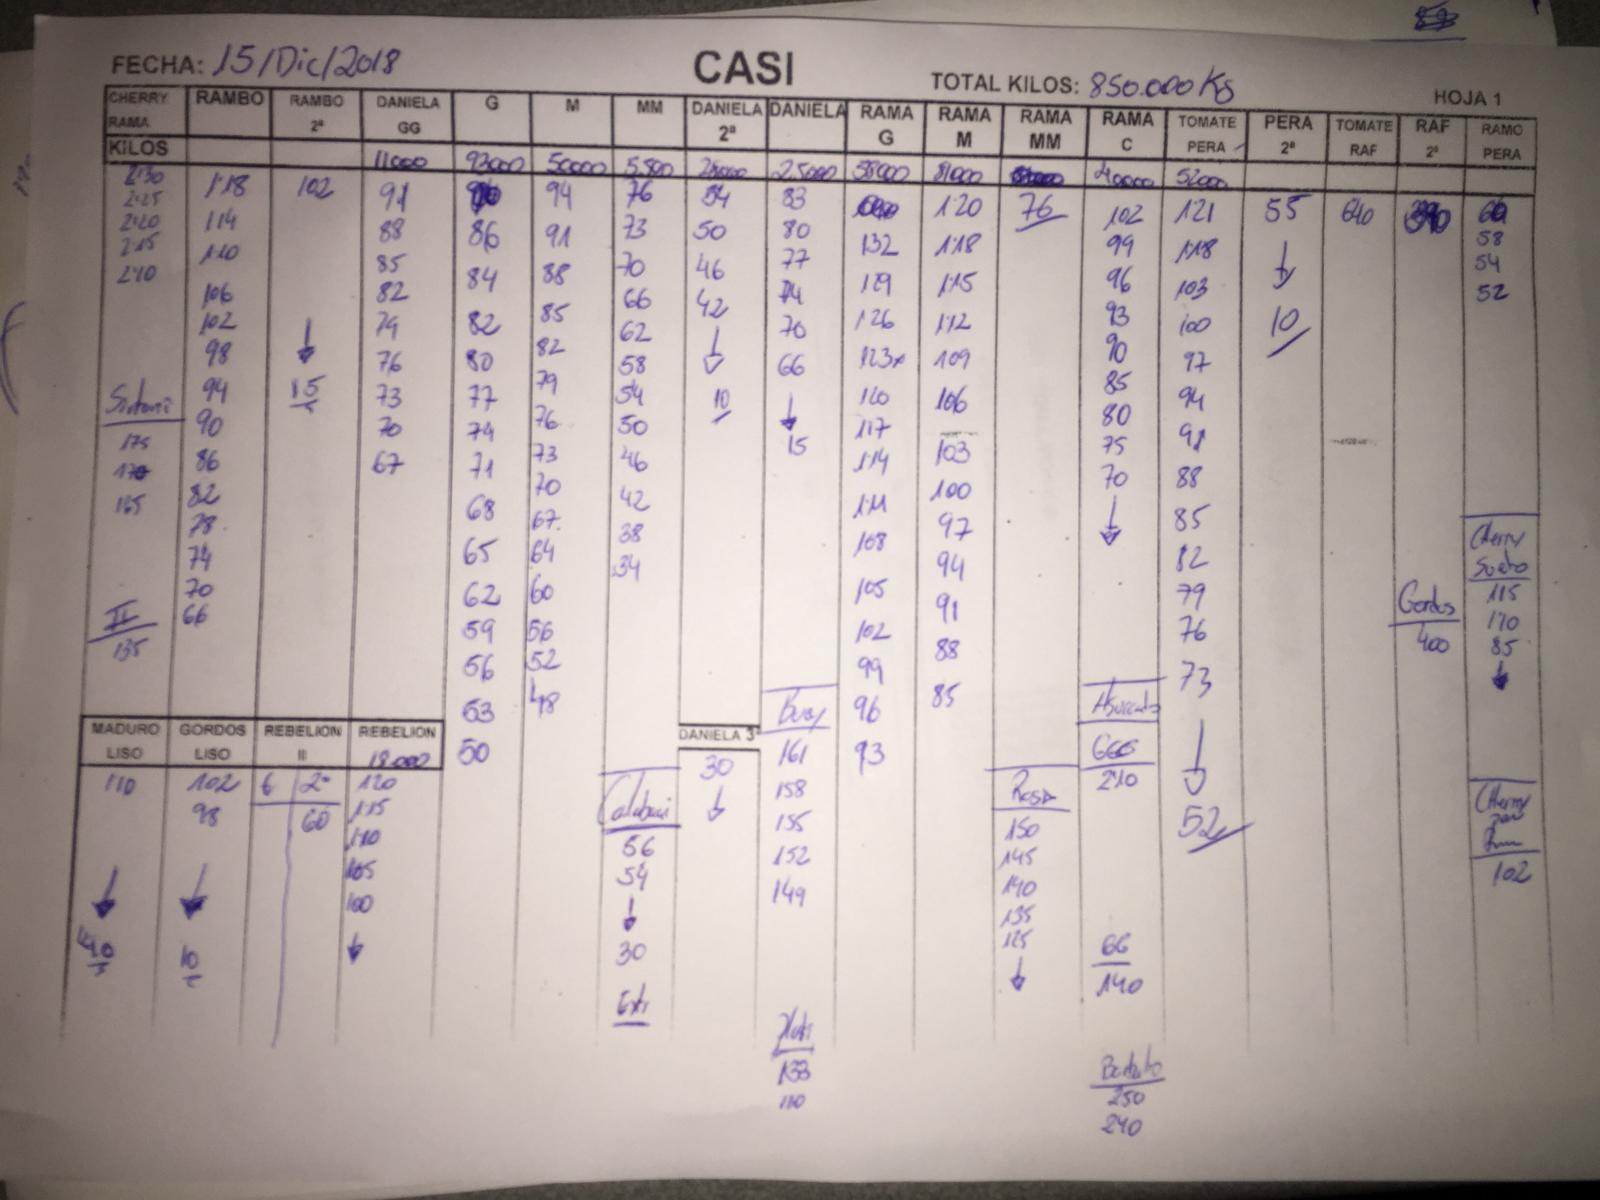 FECHA: 15/Dic/2018 CASI TOTAL KILOS: 850.000 Kg HOJA 1
CHERRY RAMA RAMBO RAMBO 2ª DANIELA GG G M MM DANIELA 2ª DANIELA RAMA G RAMA M RAMA MM RAMA C TOMATE PERA PERA 2ª TOMATE RAF RAF 2ª RAMO PERA
KILOS 11000 93000 50000 5.500 25000 81000 40000 52000
2'30 1'18 102 91 94 76 54 83 1'20 76 102 121 55 640 60
2'25 114 88 86 91 73 50 80 132 1'18 99 1'18 ↓ 58
2'20 1'10 85 84 88 70 46 77 129 1'15 96 103 10 54
2'15 106 82 82 85 66 42 74 126 1'12 93 100 52
2'10 102 79 80 82 62 ↓ 70 123x 109 90 97
98 ↓ 76 77 79 58 10 66 120 106 85 94
94 15 73 74 76 54 ↓ 117 103 80 91
90 70 71 73 50 15 114 100 75 88
175 86 67 68 70 46 111 97 70 85
170 82 65 67 42 108 94 ↓ 82
165 78 62 64 38 105 91 79
74 59 60 34 102 88 76
70 56 56 99 85 73
66 53 52 96 ↓
II 50 48 93 52
135
Cherry
Suelto
115
110
85
↓
Gordos
400
MADURO LISO GORDOS LISO REBELION II REBELION 18.000
110 102 6 2ª 120
98 60 115
↓ ↓ 110
10 105
100
↓
DANIELA 3ª
30
↓
56
54
↓
30
161
158
155
152
149
133
110
Rosa
150
145
140
135
125
↓
GGG
210
GG
140
250
240
Cherry
102